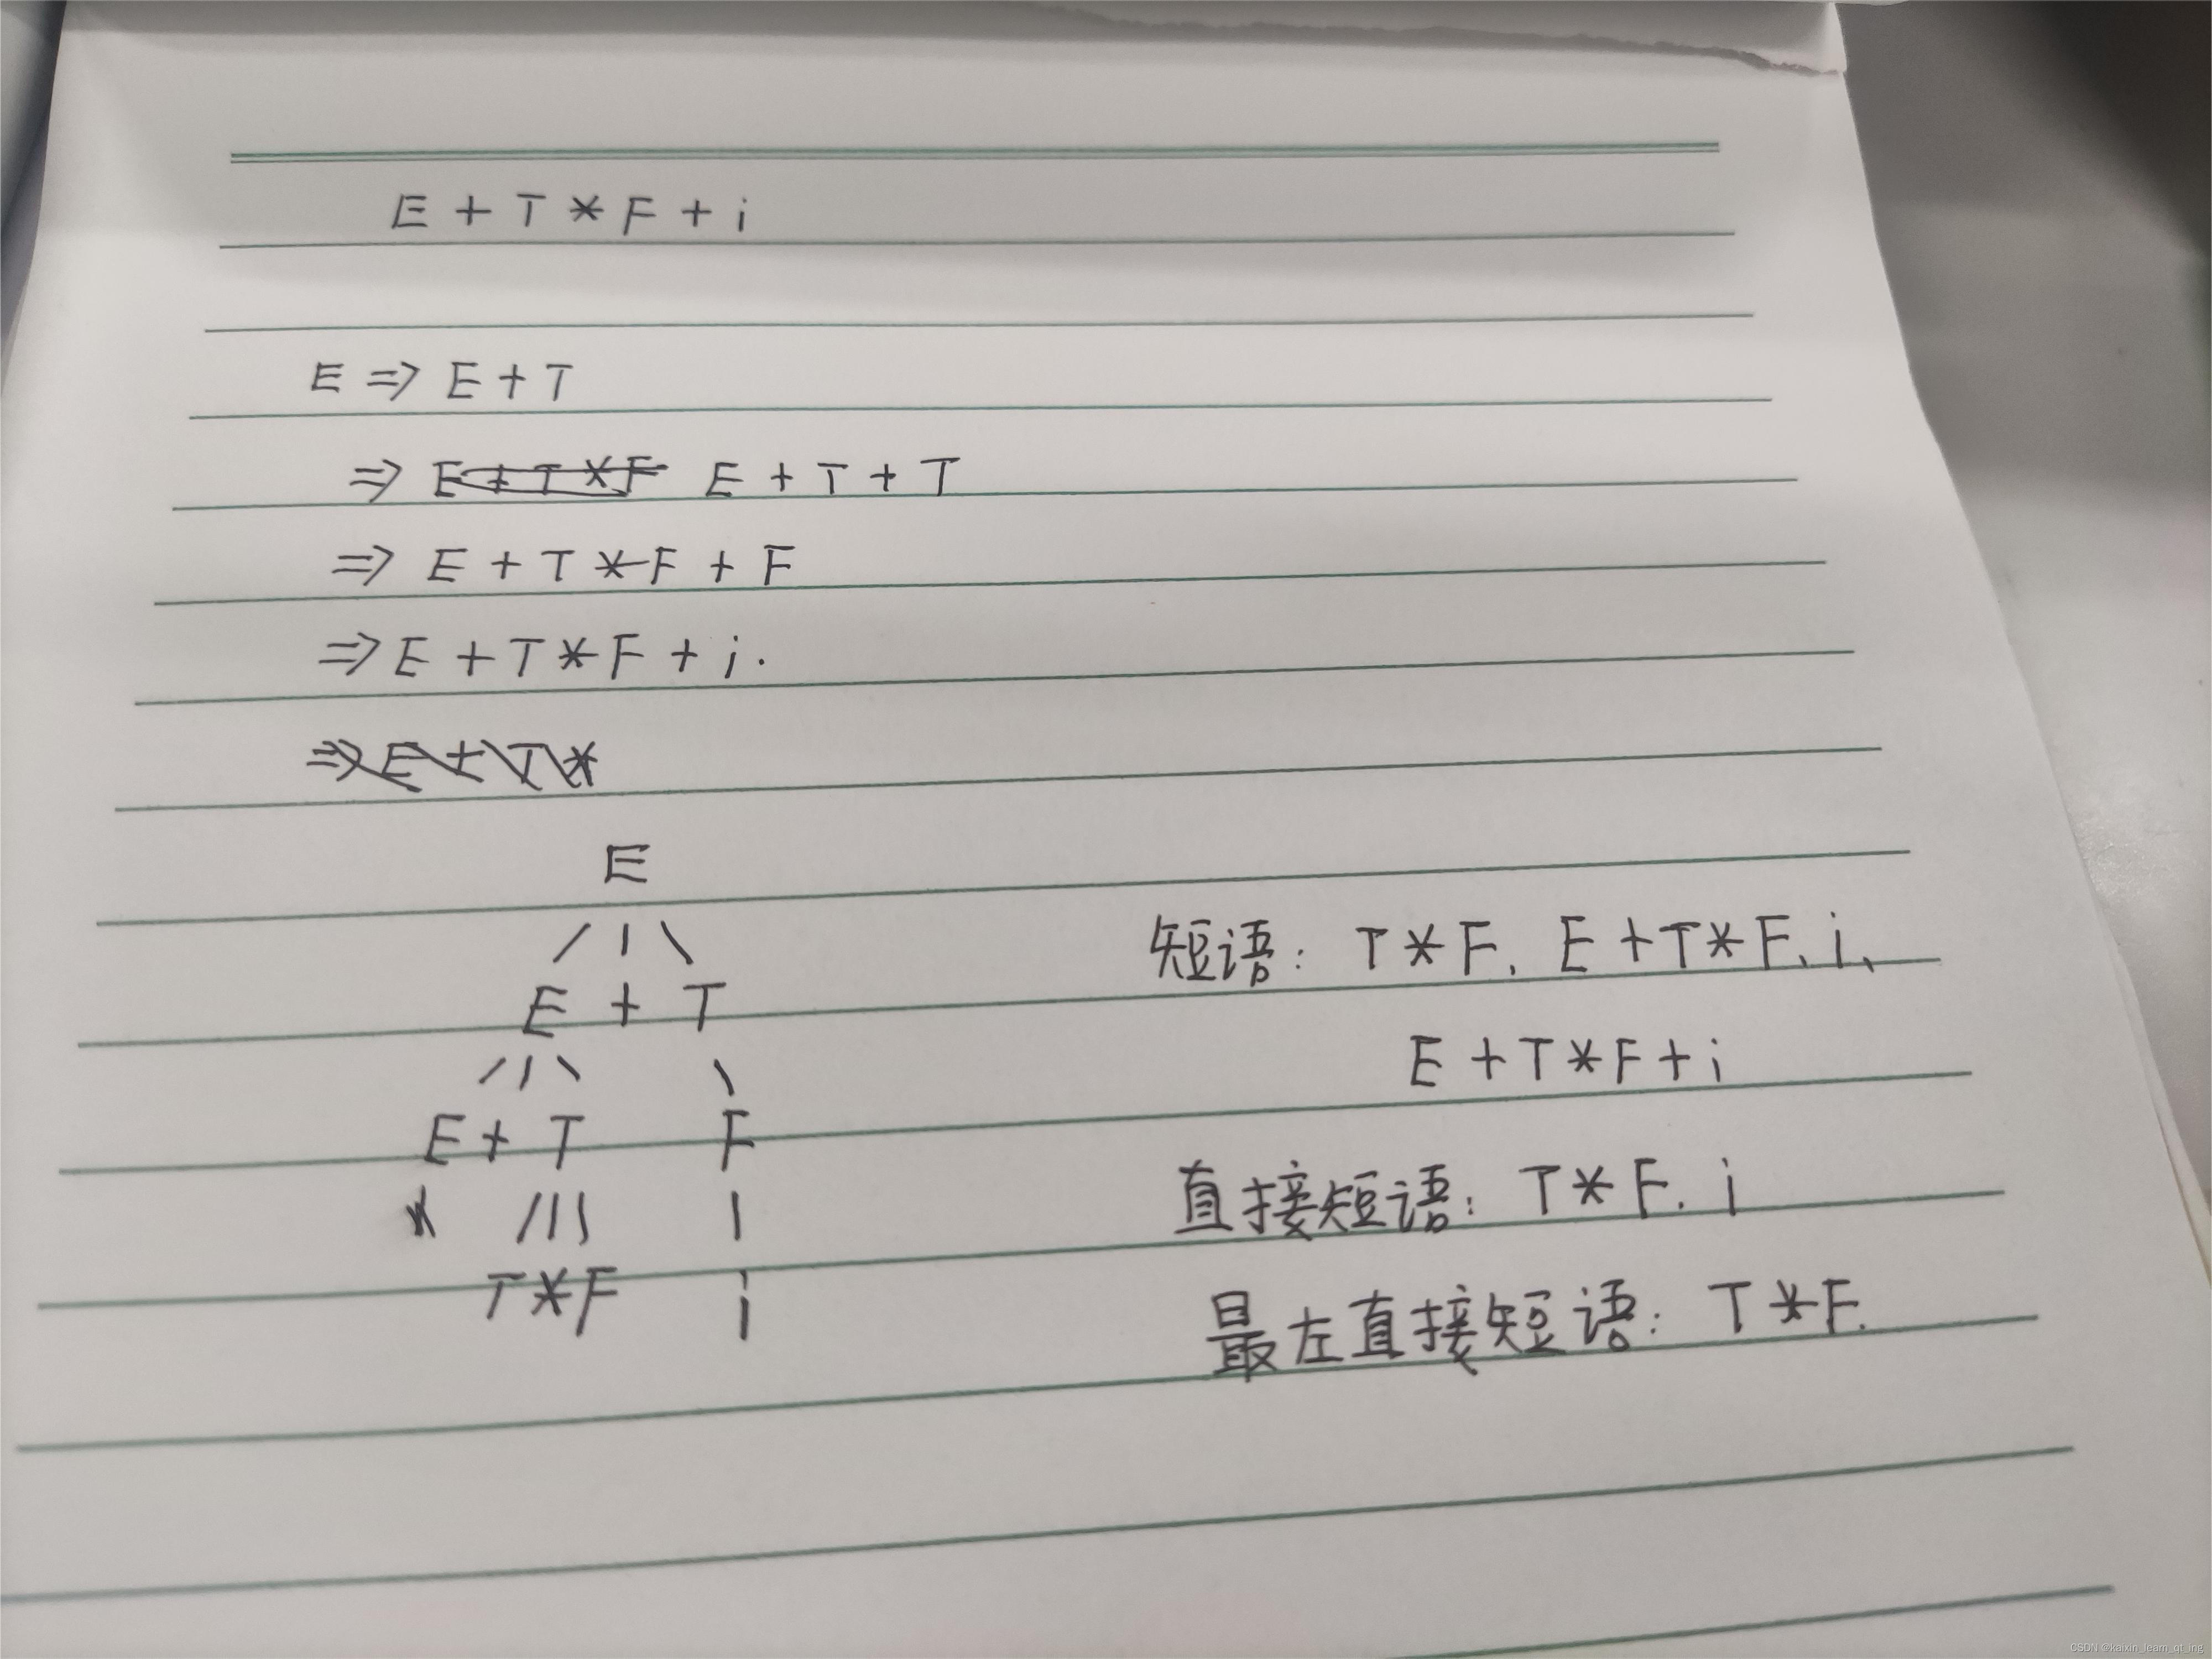 E + T * F + i
E => E + T
=> E + T * F E + T + T
=> E + T * F + F
=> E + T * F + i.
=> E + T *
E
/ | \
E + T
/ | \ \
E + T F
/ | | |
T * F i
短语: T * F、E + T * F、i、
E + T * F + i
直接短语: T * F、i
最左直接短语: T * F.
CSDN @kaixin_learn_qt_ing